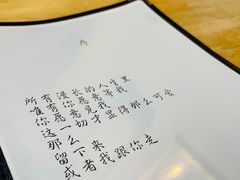 序
所有漫长的人生里
唯有你愿意等我
你愿意见我
这一切才显得那么可爱
那么
留下来
或者我跟你走